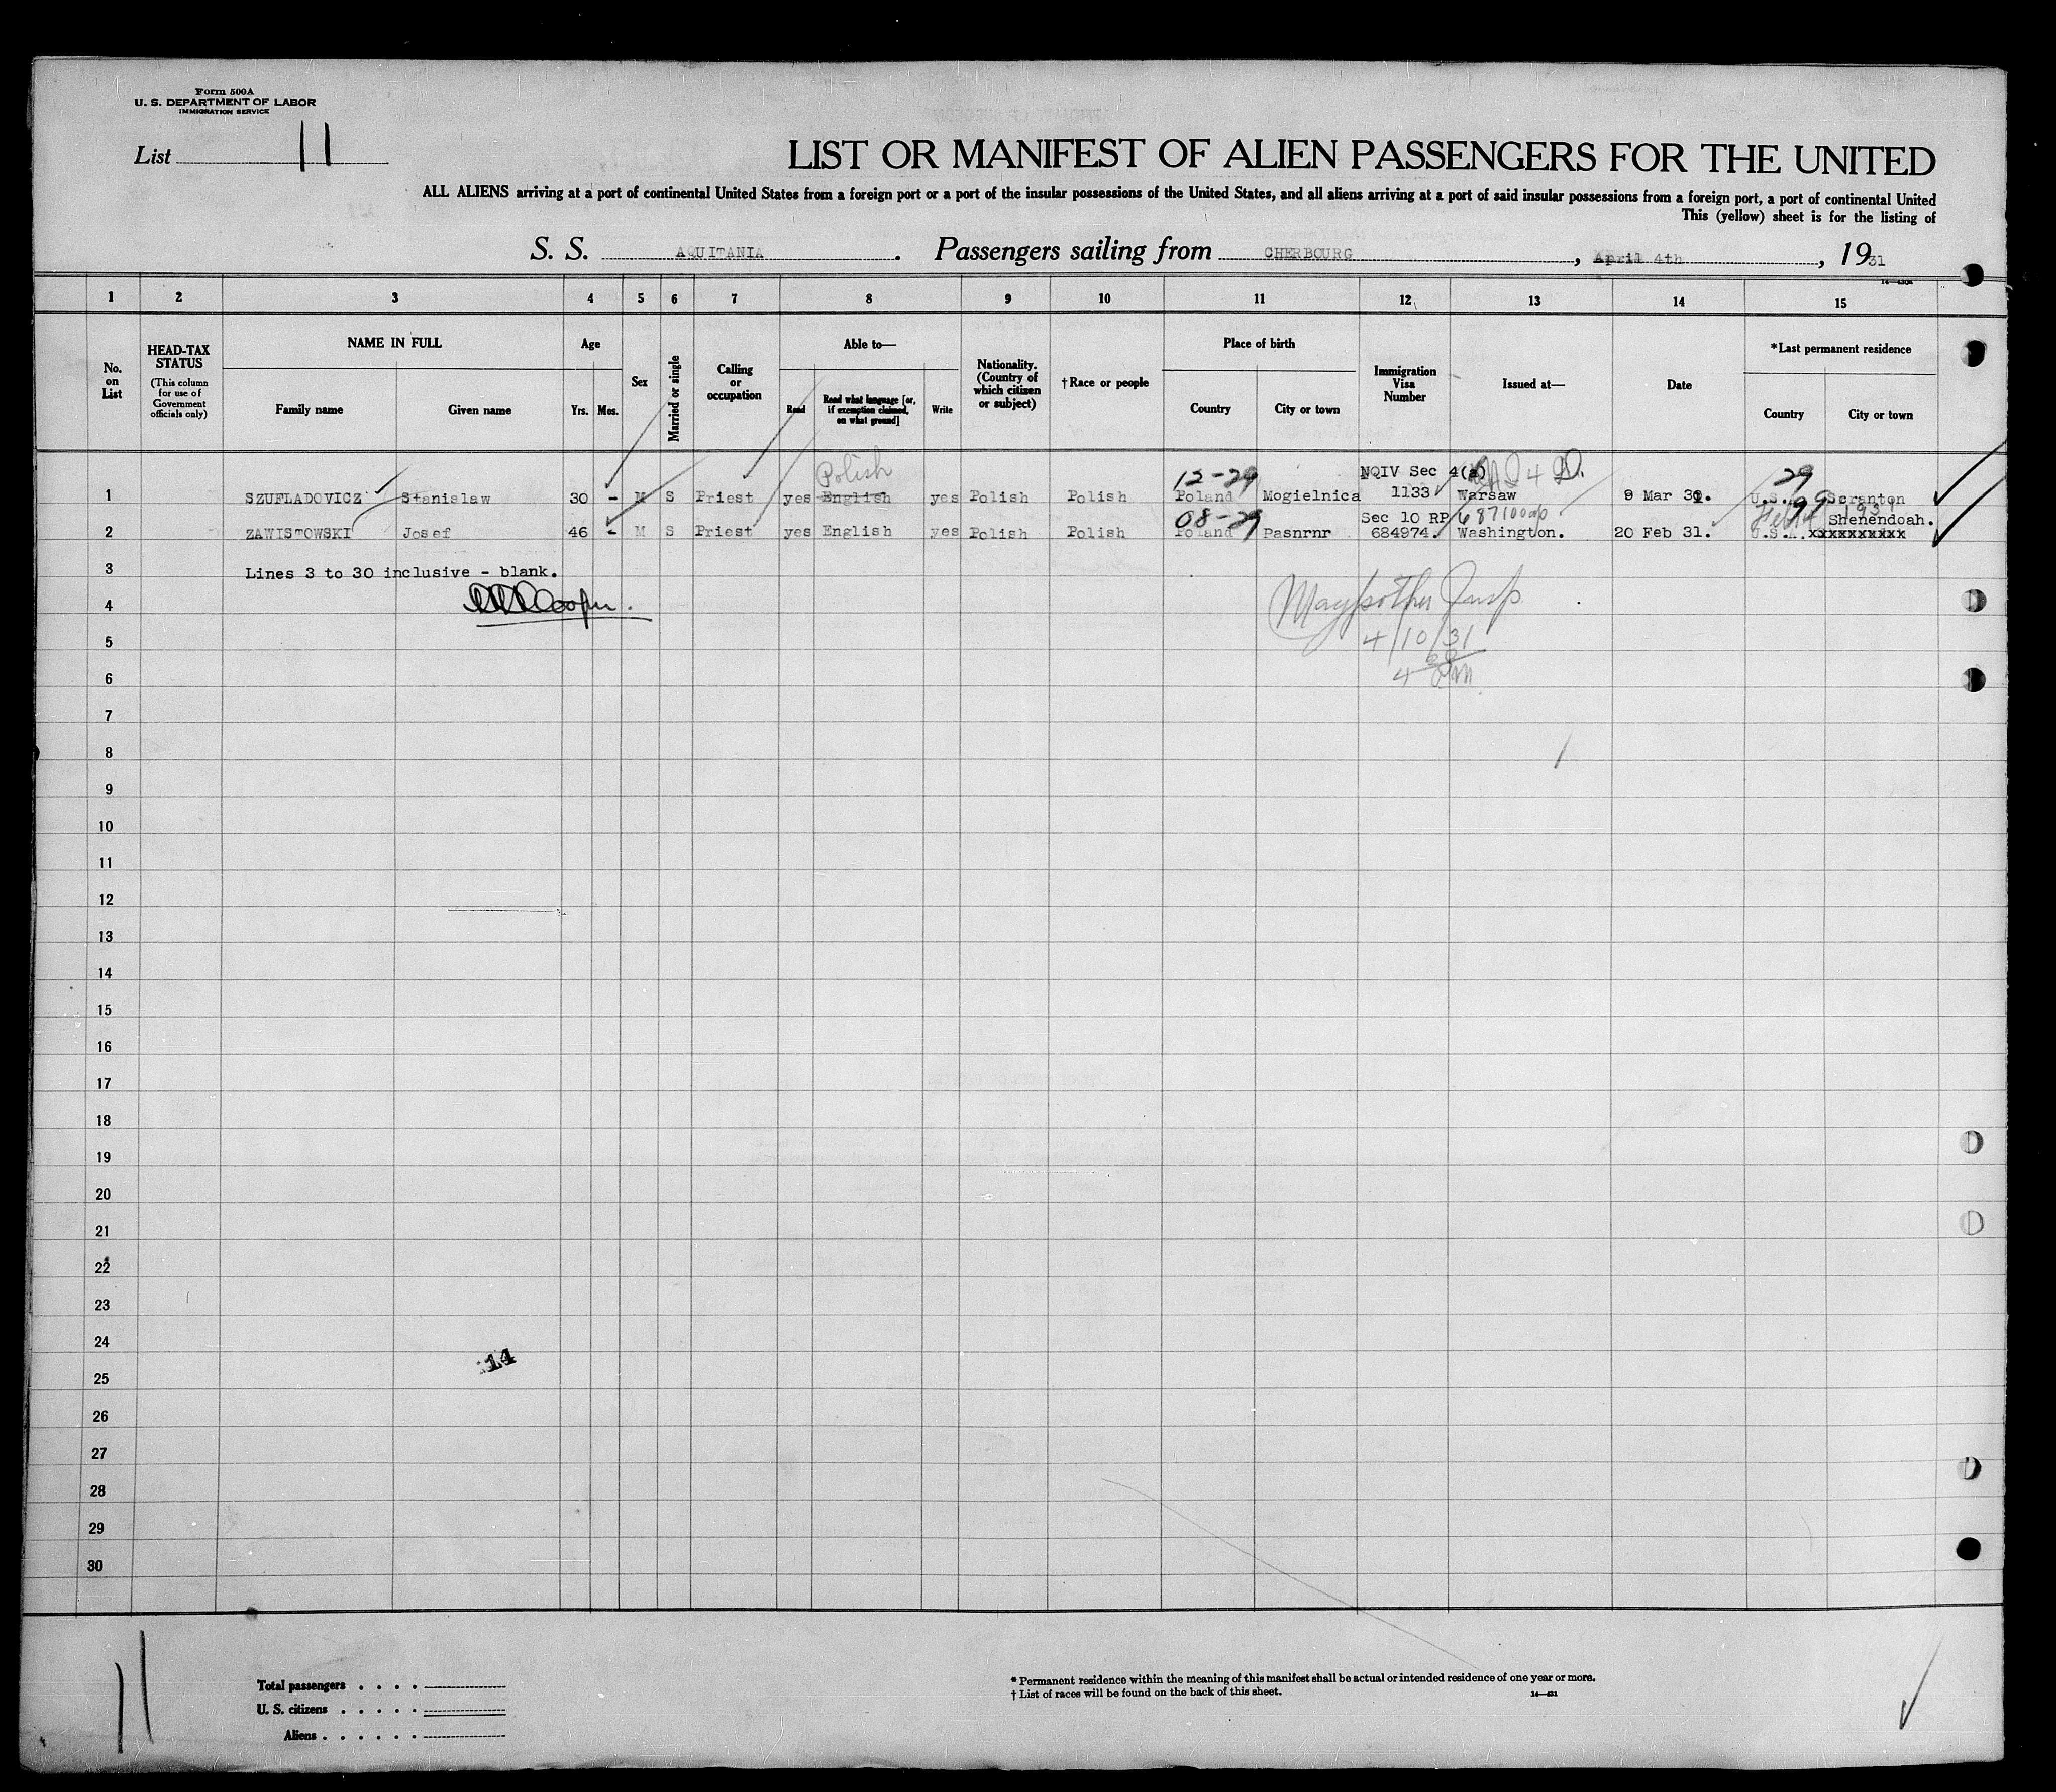 Form 500A
U. S. DEPARTMENT OF LABOR
IMMIGRATION SERVICE
List 11
LIST OR MANIFEST OF ALIEN PASSENGERS FOR THE UNITED
ALL ALIENS arriving at a port of continental United States from a foreign port or a port of the insular possessions of the United States, and all aliens arriving at a port of said insular possessions from a foreign port, a port of continental United
This (yellow) sheet is for the listing of
S. S. AQUITANIA. Passengers sailing from CHERBOURG, April 4th, 1931
1 2 3 4 5 6 7 8 9 10 11 12 13 14 15
No. on List
HEAD-TAX STATUS
(This column for use of Government officials only)
NAME IN FULL
Family name Given name
Age
Yrs. Mos.
Sex
Married or single
Calling or occupation
Able to—
Read
Read what language [or, if exemption claimed, on what ground]
Write
Nationality. (Country of which citizen or subject)
†Race or people
Place of birth
Country City or town
Immigration Visa Number
Issued at—
Date
*Last permanent residence
Country City or town
Polish 12-29 NQIV Sec 4(a) 4 D. 29
1 SZUFLADOVICZ Stanislaw 30 - M S Priest yes English yes Polish Polish Poland Mogielnica 1133 Warsaw 9 Mar 31. U.S. Scranton
08-29 Sec 10 RP 99 1931 Shenendoah.
2 ZAWISTOWSKI Josef 46 - M S Priest yes English yes Polish Polish Poland Pasnrnr 684974. Washington. 20 Feb 31. U.S. xxxxxxxxxx
3 Lines 3 to 30 inclusive - blank.
4 Cooper.
5 4/10/31
6 4 30 PM
7
8
9
10
11
12
13
14
15
16
17
18
19
20
21
22
23
24
14
25
26
27
28
29
30
11
Total passengers . . . .
U. S. citizens . . . . .
Aliens . . . . . .
* Permanent residence within the meaning of this manifest shall be actual or intended residence of one year or more.
† List of races will be found on the back of this sheet. 14—431